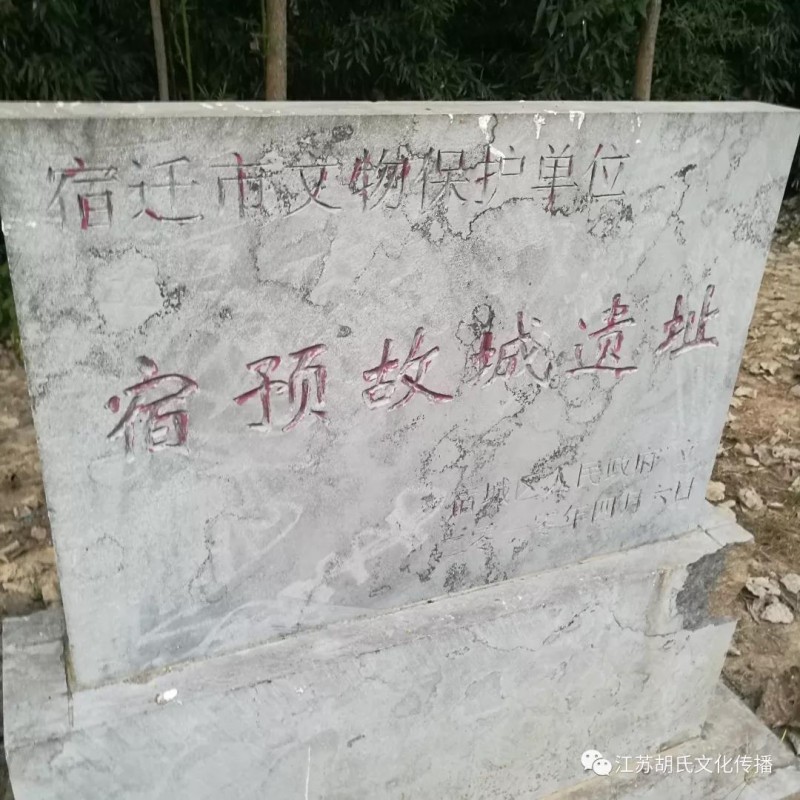 宿迁市文物保护单位
宿预故城遗址
宿城区人民政府 立
年四月六日
江苏胡氏文化传播